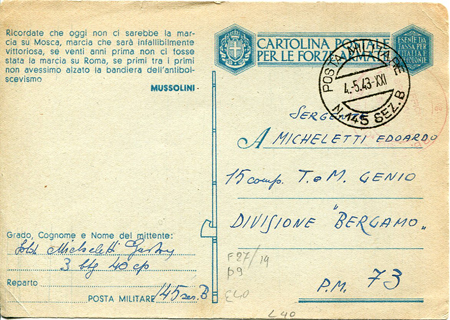 Ricordate che oggi non ci sarebbe la mar-
cia su Mosca, marcia che sarà infallibilmente
vittoriosa, se venti anni prima non ci fosse
stata la marcia su Roma, se primi tra i primi
non avessimo alzato la bandiera dell'antibol-
scevismo
MUSSOLINI
CARTOLINA POSTALE
PER LE FORZE ARMATE
ESENTE DA
TASSA PER
POSTA MILITARE
4.-5.43-XXI
N.145 SEZ.B
A MICHELETTI EDOARDO
15 comp. T.e M. GENIO
DIVISIONE "BERGAMO"
P.M. 73
Grado, Cognome e Nome del mittente:
Micheletti
3 btg 40 cp
Reparto
POSTA MILITARE 145 sez. B
F27/19
P9
L40